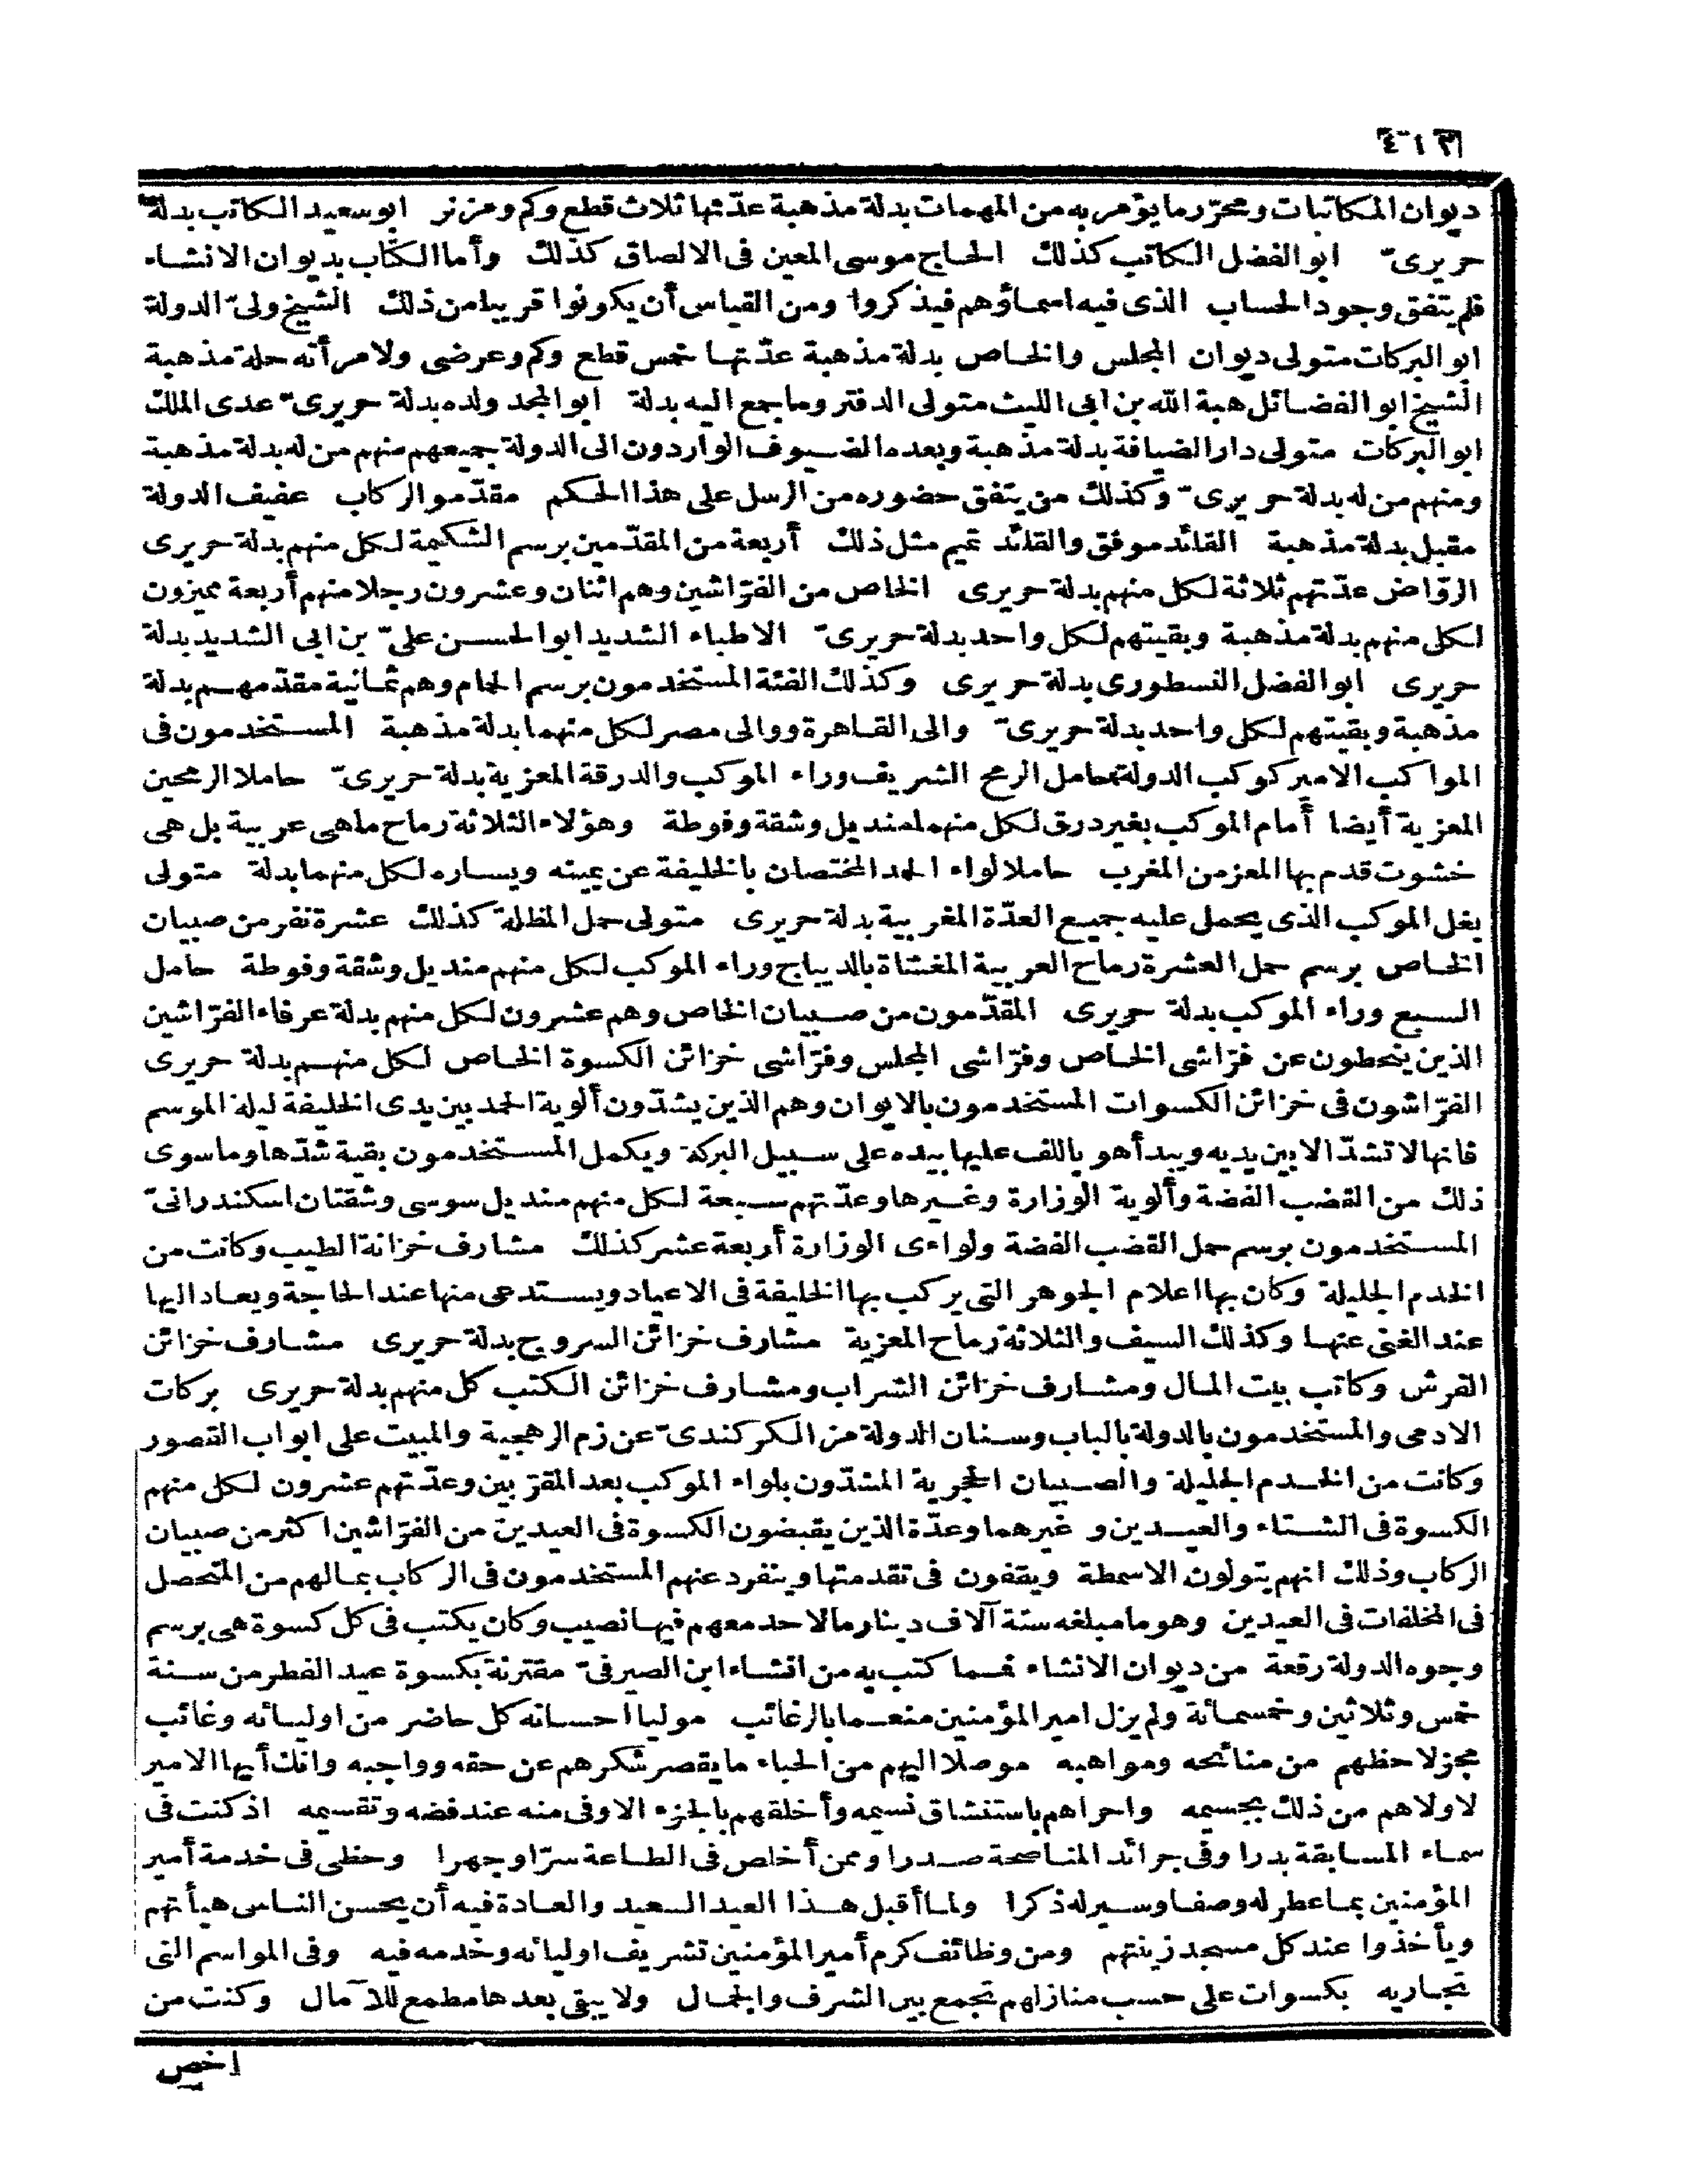 ٤١٢
ديوان المكاتبات ومحرّر ما يؤمر به من المهمات بدلة مذهبة عدّتها ثلاث قطع وكم ومزنر ابو سعيد الكاتب بدلة
حريرىّ ابو الفضل الكاتب كذلك الحاج موسى المعين فى الالصاق كذلك وأما الكتاب بديوان الانشاء
فلم يتفق وجود الحساب الذى فيه اسماؤهم فيذكروا ومن القياس أن يكونوا قريبا من ذلك الشيخ ولىّ الدولة
ابو البركات متولى ديوان المجلس والخاص بدلة مذهبة عدّتها خمس قطع وكم وعرضى ولامرأته حلة مذهبة
الشيخ ابو الفضائل هبة الله بن ابى الليث متولى الدفتر وما جمع اليه بدلة ابو المجد ولده بدلة حريرىّ عدى الملك
ابو البركات متولى دار الضيافة بدلة مذهبة وبعده الضيوف الواردون الى الدولة جميعهم منهم من له بدلة مذهبة
ومنهم من له بدلة حريرىّ وكذلك من يتفق حضوره من الرسل على هذا الحكم مقدّمو الركاب عفيف الدولة
مقبل بدلة مذهبة القائد موفق والقائد تميم مثل ذلك أربعة من المقدّمين برسم الشكيمة لكل منهم بدلة حريرى
الروّاض عدّتهم ثلاثة لكل منهم بدلة حريرى الخاص من الفرّاشين وهم اثنان وعشرون رجلا منهم أربعة مميزون
لكل منهم بدلة مذهبة وبقيتهم لكل واحد بدلة حريرىّ الاطباء الشديد ابو الحسن علىّ بن ابى الشديد بدلة
حريرى ابو الفضل النسطورى بدلة حريرى وكذلك الفئة المستخدمون برسم الحمام وهم ثمانية مقدّمهم بدلة
مذهبة وبقيتهم لكل واحد بدلة حريرىّ والى القاهرة ووالى مصر لكل منهما بدلة مذهبة المستخدمون فى
المواكب الامير كوكب الدولة حامل الرمح الشريف وراء الموكب والدرقة المعزية بدلة حريرىّ حاملا الرمحين
المعزية أيضا أمام الموكب بغير درق لكل منهما منديل وشقة وفوطة وهؤلاء الثلاثة رماح ما هى عربية بل هى
خشوت قدم بها المعز من المغرب حاملا لواء الحمد المختصان بالخليفة عن يمينه ويساره لكل منهما بدلة متولى
بغل الموكب الذى يحمل عليه جميع العدّة المغربية بدلة حريرى متولى حمل المظلة كذلك عشرة نفر من صبيان
الخاص برسم حمل العشرة رماح العربية المغشاة بالديباج وراء الموكب لكل منهم منديل وشقة وفوطة حامل
السبع وراء الموكب بدلة حريرى المقدّمون من صبيان الخاص وهم عشرون لكل منهم بدلة عرفاء الفرّاشين
الذين ينحطون عن فرّاشى الخاص وفرّاشى المجلس وفرّاشى خزائن الكسوة الخاص لكل منهم بدلة حريرى
الفرّاشون فى خزائن الكسوات المستخدمون بالايوان وهم الذين يشدّون ألوية الحمد بين يدى الخليفة ليلة الموسم
فانها لا تشدّ الا بين يديه ويبدأ هو باللف عليها بيده على سبيل البركة ويكمل المستخدمون بقية شدّها وما سوى
ذلك من القضب الفضة وألوية الوزارة وغيرها وعدّتهم سبعة لكل منهم منديل سوسى وشقتان اسكندرانىّ
المستخدمون برسم حمل القضب الفضة ولواءى الوزارة أربعة عشر كذلك مشارف خزانة الطيب وكانت من
الخدم الجليلة وكان بها اعلام الجوهر التى يركب بها الخليفة فى الاعياد ويستدعى منها عند الحاجة ويعاد اليها
عند الغنى عنها وكذلك السيف والثلاثة رماح المعزية مشارف خزائن السروج بدلة حريرى مشارف خزائن
الفرش وكاتب بيت المال ومشارف خزائن الشراب ومشارف خزائن الكتب كل منهم بدلة حريرى بركات
الادمى والمستخدمون بالدولة بالباب وسنان الدولة من الكركندىّ عن زم الرهجية والمبيت على ابواب القصور
وكانت من الخدم الجليلة والصبيان الحجرية المشدّون بلواء الموكب بعد المقرّبين وعدّتهم عشرون لكل منهم
الكسوة فى الشتاء والعيدين و غيرهما وعدّة الذين يقبضون الكسوة فى العيدين من الفرّاشين اكثر من صبيان
الركاب وذلك انهم يتولون الاسمطة ويقفون فى تقدمتها وينفرد عنهم المستخدمون فى الركاب بما لهم من المتحصل
فى المخلفات فى العيدين وهو ما مبلغه ستة آلاف دينار ما لاحد معهم فيها نصيب وكان يكتب فى كل كسوة هى برسم
وجوه الدولة رقعة من ديوان الانشاء فمما كتب به من انشاء ابن الصيرفىّ مقترنة بكسوة عيد الفطر من سنة
خمس وثلاثين وخمسمائة ولم يزل امير المؤمنين منعما بالرغائب موليا احسانه كل حاضر من اوليائه وغائب
مجزلا حظهم من منائحه ومواهبه موصلا اليهم من الحباء ما يقصر شكرهم عن حقه وواجبه وانك أيها الامير
لاولاهم من ذلك بجسيمه واحراهم باستنشاق نسيمه وأخلقهم بالجزء الاوفى منه عند فضه وتقسيمه اذ كنت فى
سماء المسابقة بدرا وفى جرائد المناصحة صدرا وممن أخلص فى الطاعة سرّا وجهرا وحظى فى خدمة أمير
المؤمنين بما عطر له وصفا وسير له ذكرا ولما أقبل هذا العيد السعيد والعادة فيه أن يحسن الناس هيأتهم
ويأخذوا عند كل مسجد زينتهم ومن وظائف كرم أمير المؤمنين تشريف اوليائه وخدمه فيه وفى المواسم التى
تجاريه بكسوات على حسب منازلهم تجمع بين الشرف والجمال ولا يبقى بعدها مطمع للآمال وكنت من
اخص